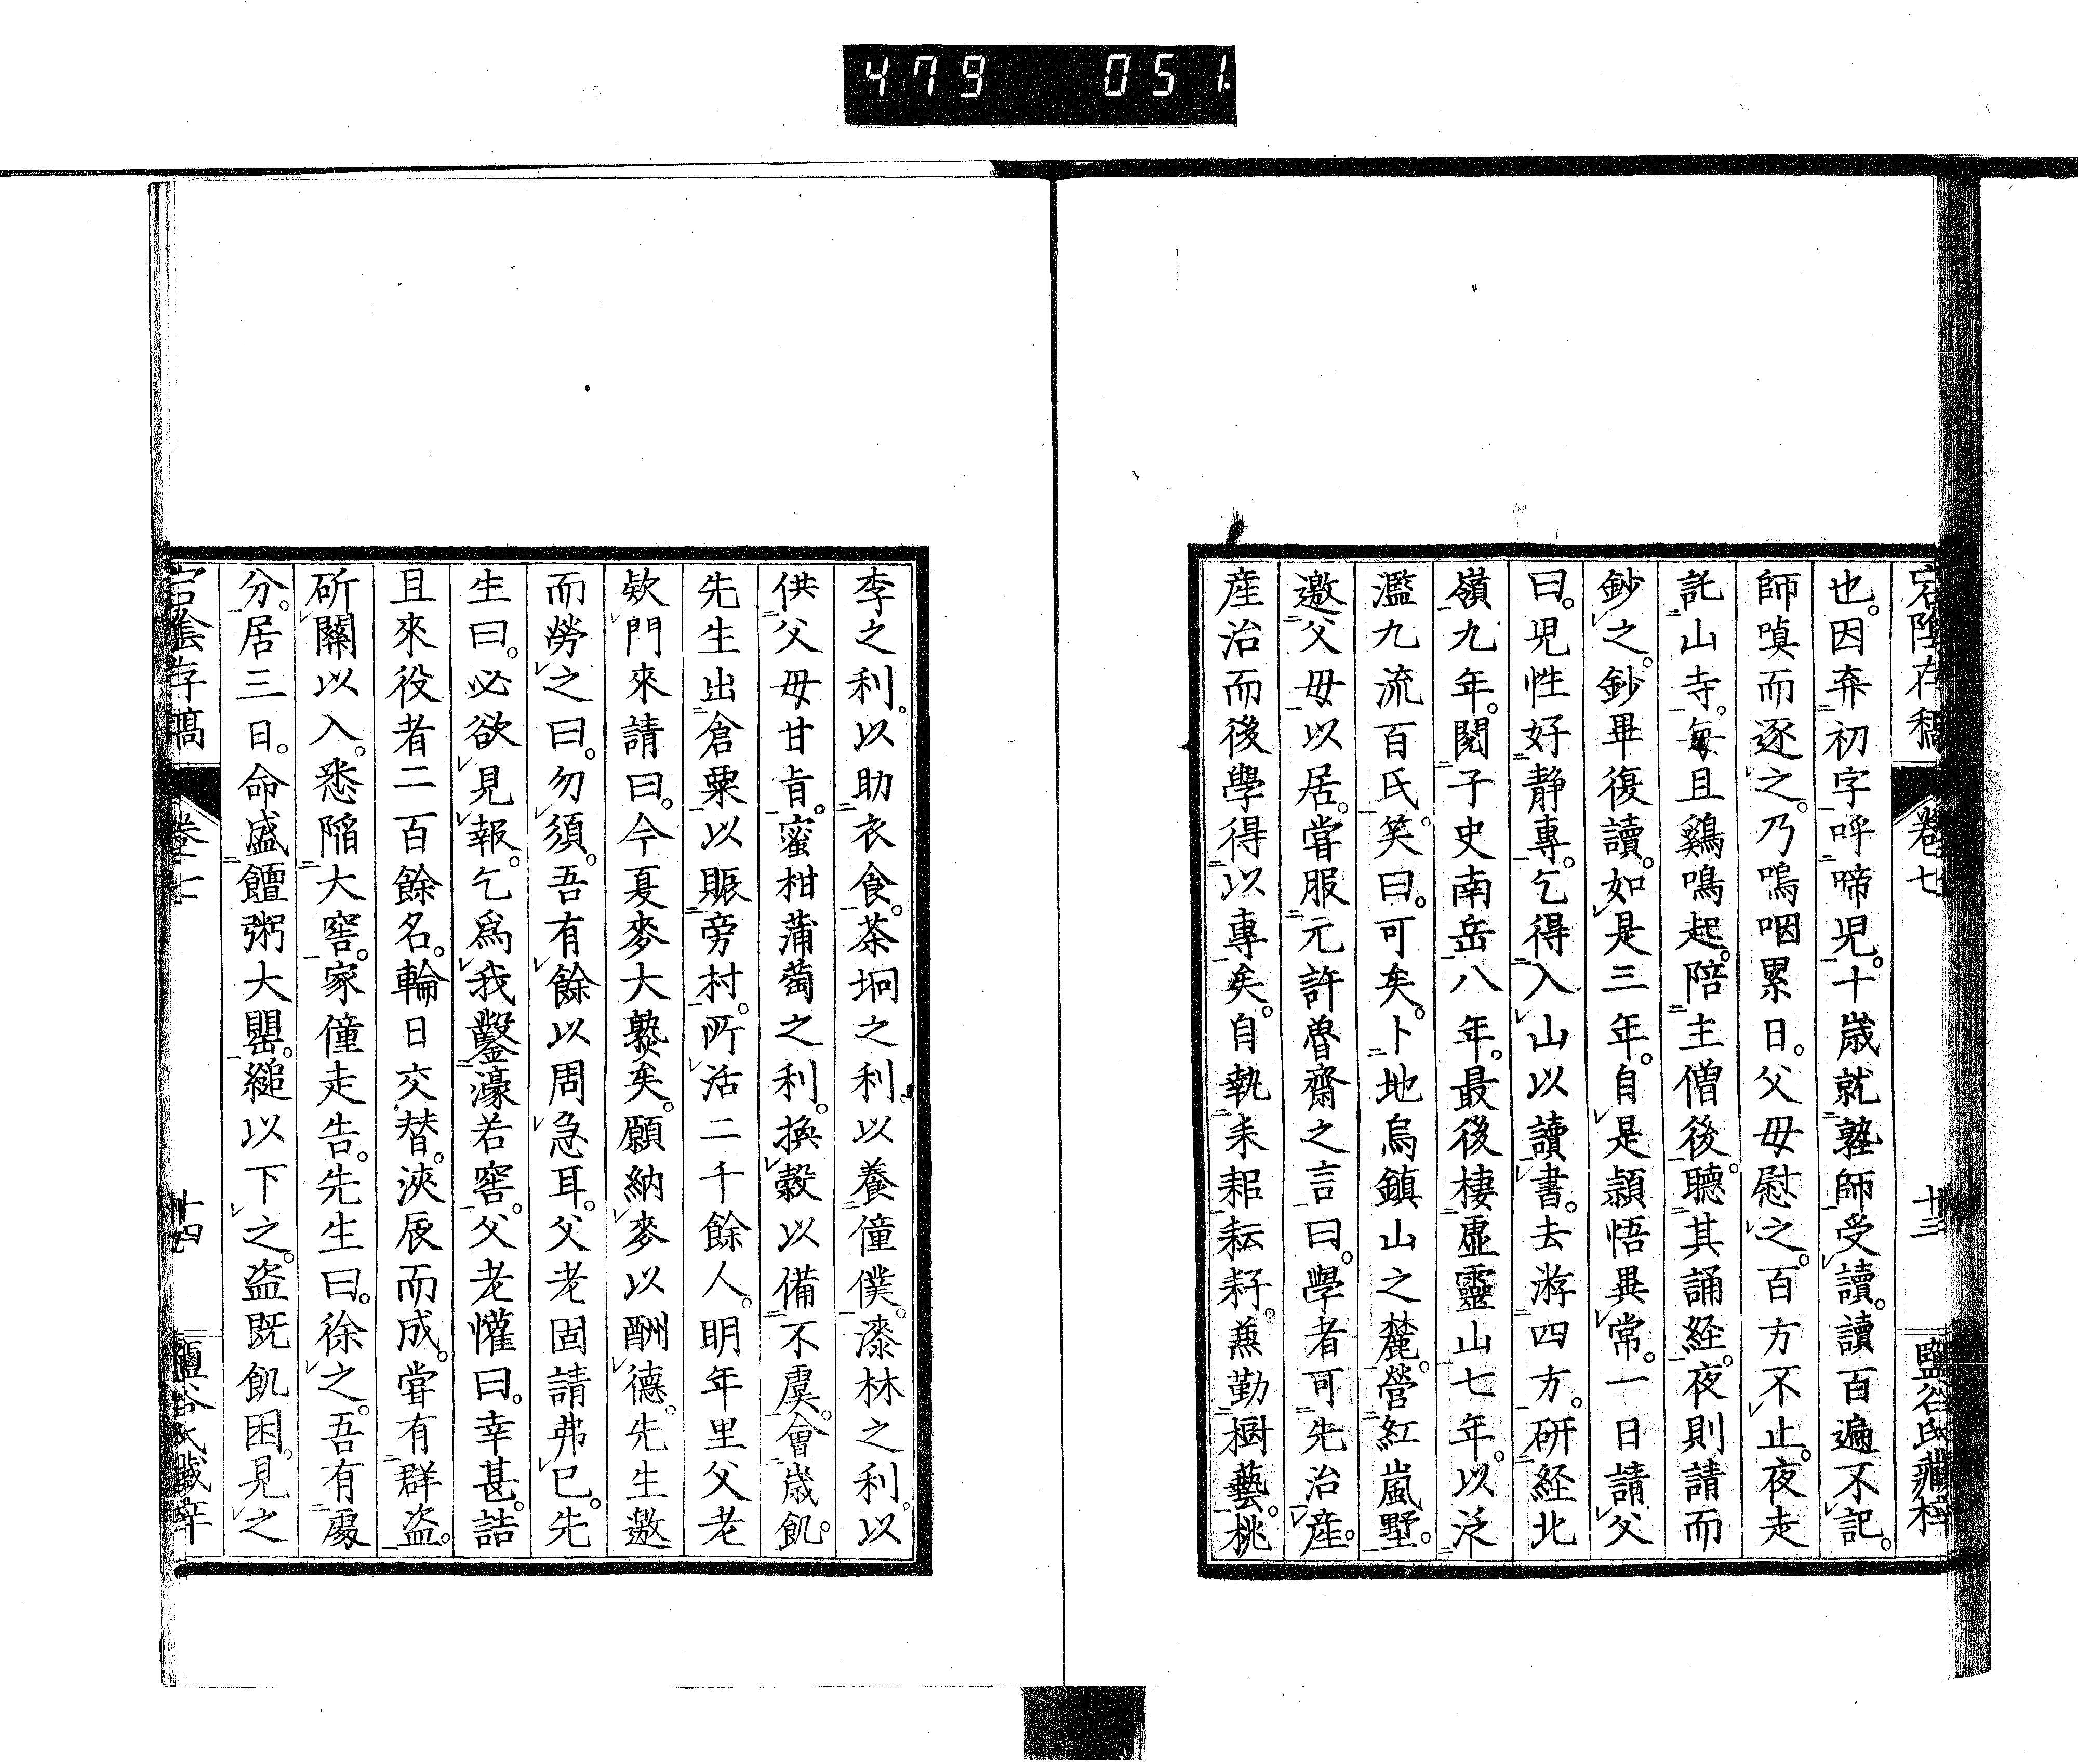 479 051
宕陰存稿 卷七 十三 鹽谷氏藏梓
也。因弃初字呼啼児。十歲就塾師受讀。讀百遍不記。
師嗔而逐之。乃嗚咽累日。父母慰之。百方不止。夜走
託山寺。每且鷄鳴起。陪主僧後。聽其誦経。夜則請而
鈔之。鈔畢復讀。如是三年。自是頴悟異常。一日請父
曰。児性好静專。乞得入山以讀書。去游四方。研経北
嶺九年。閱子史南岳八年。最後棲虛靈山七年。以泛
濫九流百氏。笑曰。可矣。卜地烏鎮山之麓。營紅嵐墅。
邀父母以居。嘗服元許魯齋之言曰。學者可先治産。
産治而後學得以專矣。自執耒耜耘耔。兼勤樹藝。桃
李之利。以助衣食。茶垌之利。以養僮僕。漆林之利。以
供父母甘旨。蜜柑蒲萄之利。換穀以備不虞。會歲飢。
先生出倉粟以賑旁村。所活二千餘人。明年里父老
欵門來請曰。今夏麥大熟矣。願納麥以酬德。先生邀
而勞之曰。勿須。吾有餘以周急耳。父老固請弗已。先
生曰。必欲見報。乞爲我鑿濠若窖。父老懽曰。幸甚。詰
且來役者二百餘名。輪日交替。浹辰而成。嘗有群盜。
斫關以入。悉陷大窖。家僮走告。先生曰。徐之。吾有處
分。居三日。命盛饘粥大罌。縋以下之。盜既飢困。見之
宕陰存稿 卷七 十四 鹽谷氏藏梓